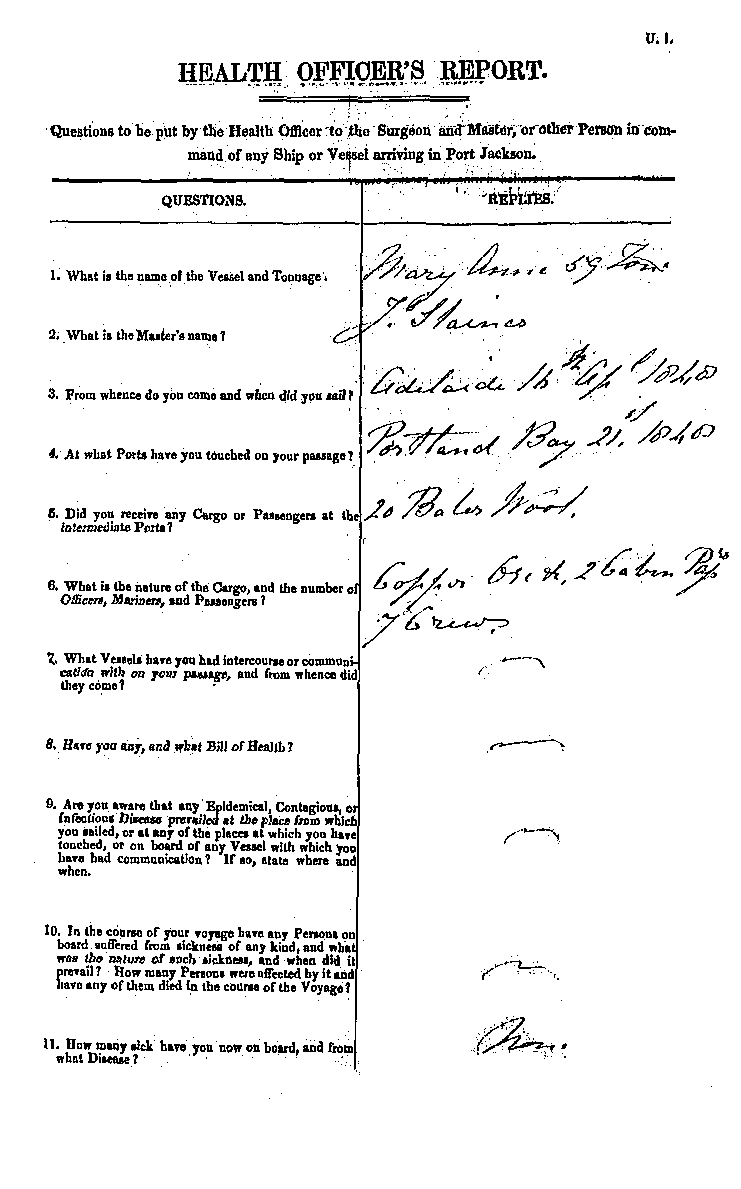 U. 1.
HEALTH OFFICER'S REPORT.
Questions to be put by the Health Officer to the Surgeon and Master, or other Person in com-
mand of any Ship or Vessel arriving in Port Jackson.
QUESTIONS.
REPLIES.
1. What is the name of the Vessel and Tonnage.
Mary Anne 59 Tons
2. What is the Master's name?
J. Staines
3. From whence do you come and when did you sail?
Adelaide Apl 1848
4. At what Ports have you touched on your passage?
Portland Bay 21st 1848
5. Did you receive any Cargo or Passengers at the
intermediate Ports?
20 Bales Wool.
6. What is the nature of the Cargo, and the number of
Officers, Mariners, and Passengers?
Copper Ore &, 2 Cabin
7 Crew
7. What Vessels have you had intercourse or communi-
cation with on your passage, and from whence did
they come?
8. Have you any, and what Bill of Health?
9. Are you aware that any Epidemical, Contagious, or
Infectious Disease prevailed at the place from which
you sailed, or at any of the places at which you have
touched, or on board of any Vessel with which you
have had communication? If so, state where and
when.
10. In the course of your voyage have any Persons on
board suffered from sickness of any kind, and what
was the nature of such sickness, and when did it
prevail? How many Persons were affected by it and
have any of them died in the course of the Voyage?
11. How many sick have you now on board, and from
what Disease?
Non.